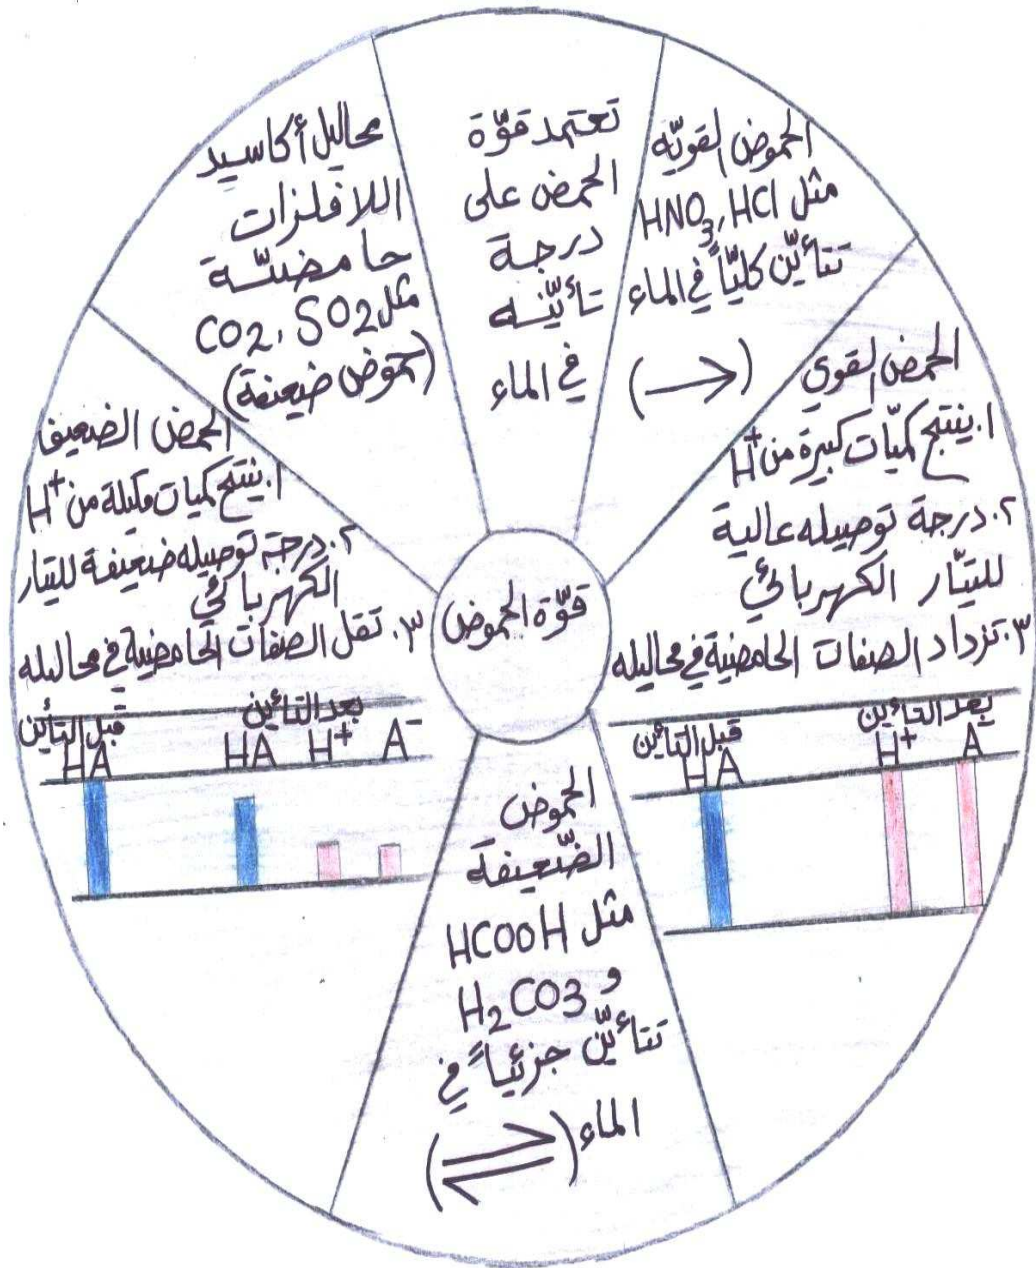 قوّة الحموض
تعتمد قوّة
الحمض على
درجة
تأيّنه
في الماء
الحموض القويّه
مثل HNO3, HCl
تتأيّن كليّاً في الماء
(→)
الحمض القوي
١. ينتج كميّات كبيرة من H+
٢. درجة توصيله عالية
للتيّار الكهربائي
٣. تزداد الصفات الحامضية في محاليله
قبل التأين بعد التأين
HA H+ A-
الحموض
الضّعيفة
مثل HCOOH
و H2CO3
تتأيّن جزئياً في
الماء (⇌)
الحمض الضعيف
١. ينتج كميات قليلة من H+
٢. درجة توصيله ضعيفة للتيار
الكهربائي
٣. تقل الصفات الحامضية في محاليله
قبل التأين بعد التأين
HA HA H+ A-
محاليل أكاسيد
اللافلزات
حامضيّة
مثل CO2, SO2
(حموض ضعيفة)